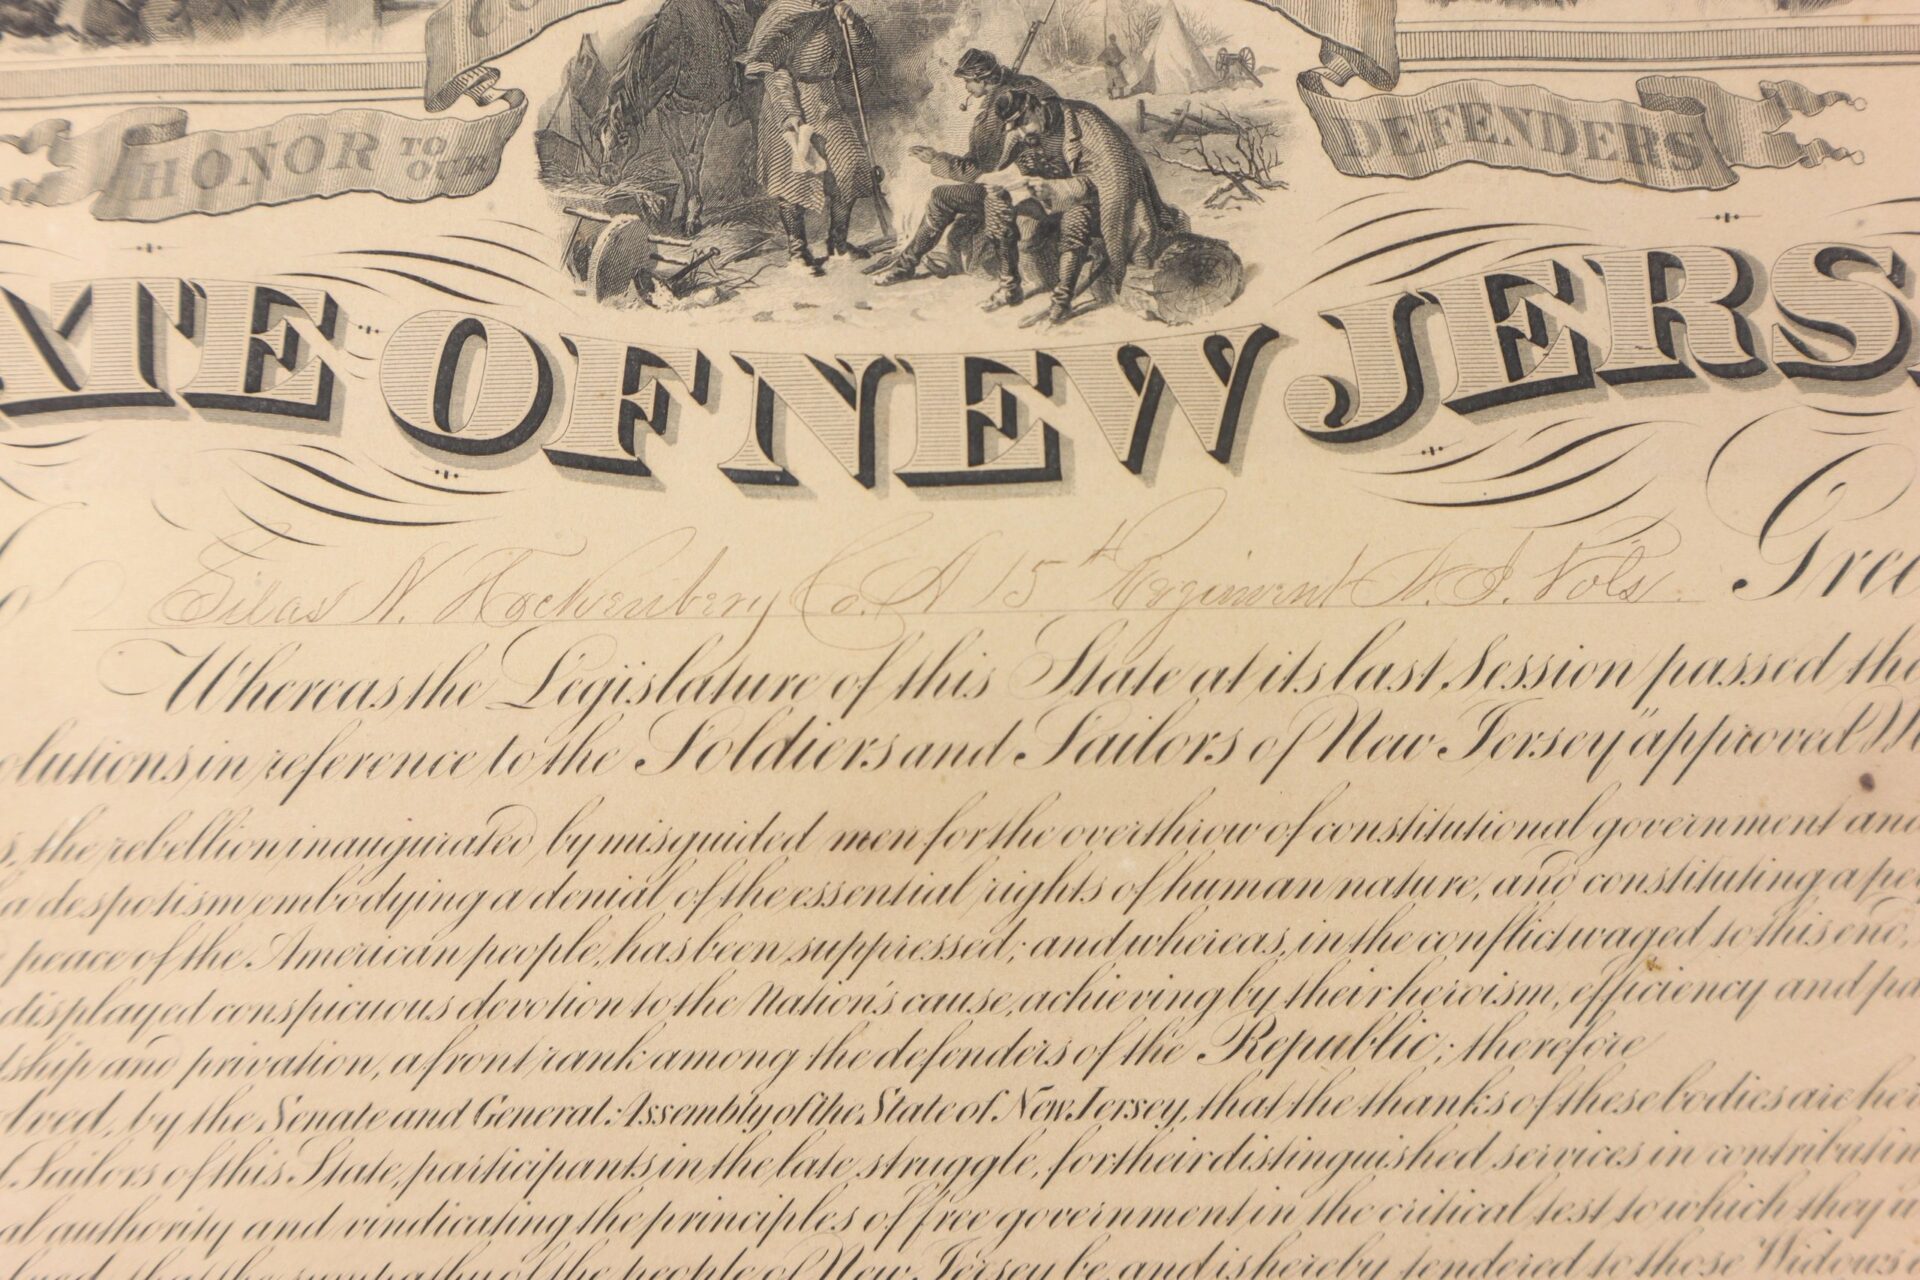 HONOR TO OUR DEFENDERS
ATE OF NEW JERS
Silas N. Hockenbery Co. A 15th Regiment N. J. Vols. Gree
Whereas the Legislature of this State at its last Session passed the
olutions in reference to the Soldiers and Sailors of New Jersey" approved M
s, the rebellion inaugurated by misguided men for the overthrow of constitutional government and
a despotism embodying a denial of the essential rights of human nature, and constituting a per
peace of the American people, has been suppressed; and whereas, in the conflict waged to this end,
displayed conspicuous devotion to the Nation's cause, achieving by their heroism, efficiency and pa
dship and privation, a front rank among the defenders of the Republic; therefore
lved, by the Senate and General Assembly of the State of New Jersey, that the thanks of these bodies are her
Sailors of this State, participants in the late struggle, for their distinguished services in contributin
al authority and vindicating the principles of free government in the critical test to which they w
lved, that the sympathy of the people of New Jersey be, and is hereby tendered to those Widows